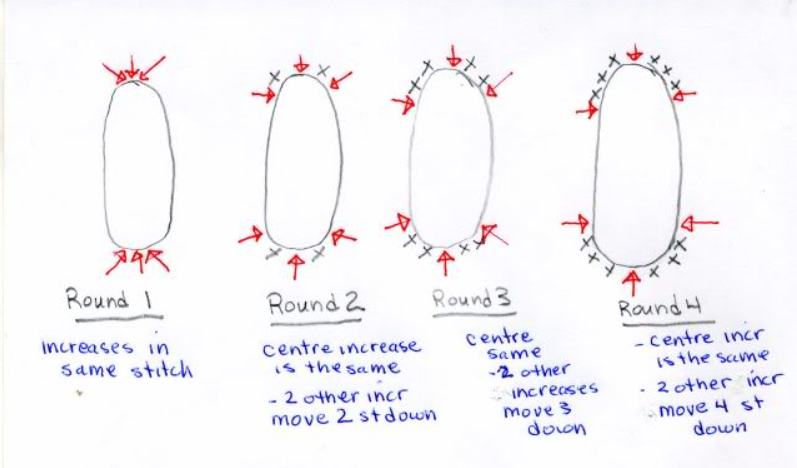 Round 1
increases in
same stitch
Round 2
centre increase
is the same
- 2 other incr
move 2 st down
Round 3
centre
same
-2 other
increases
move 3
down
Round 4
- centre incr
is the same
- 2 other incr
move 4 st
down